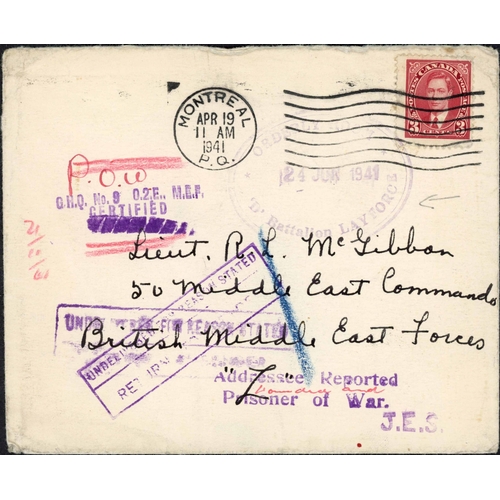 MONTREAL
APR 19
11 AM
1941
P.Q.
POSTES CANADA POSTAGE
3 CENTS 3
ORDERLY
24 JUN 1941
"D" Battalion LAYFORCE
P.O.W
O.H.Q. No. 9 O.2E., M.E.F.
CERTIFIED
Lieut. R. L. McGibbon
50 Middle East Commando
UNDELIVERED FOR REASON STATED
RETURN
UNDELIVERED FOR REASON STATED
British Middle East Forces
"Z"
Addressee Reported
Wounded and
Prisoner of War.
J.E.S.